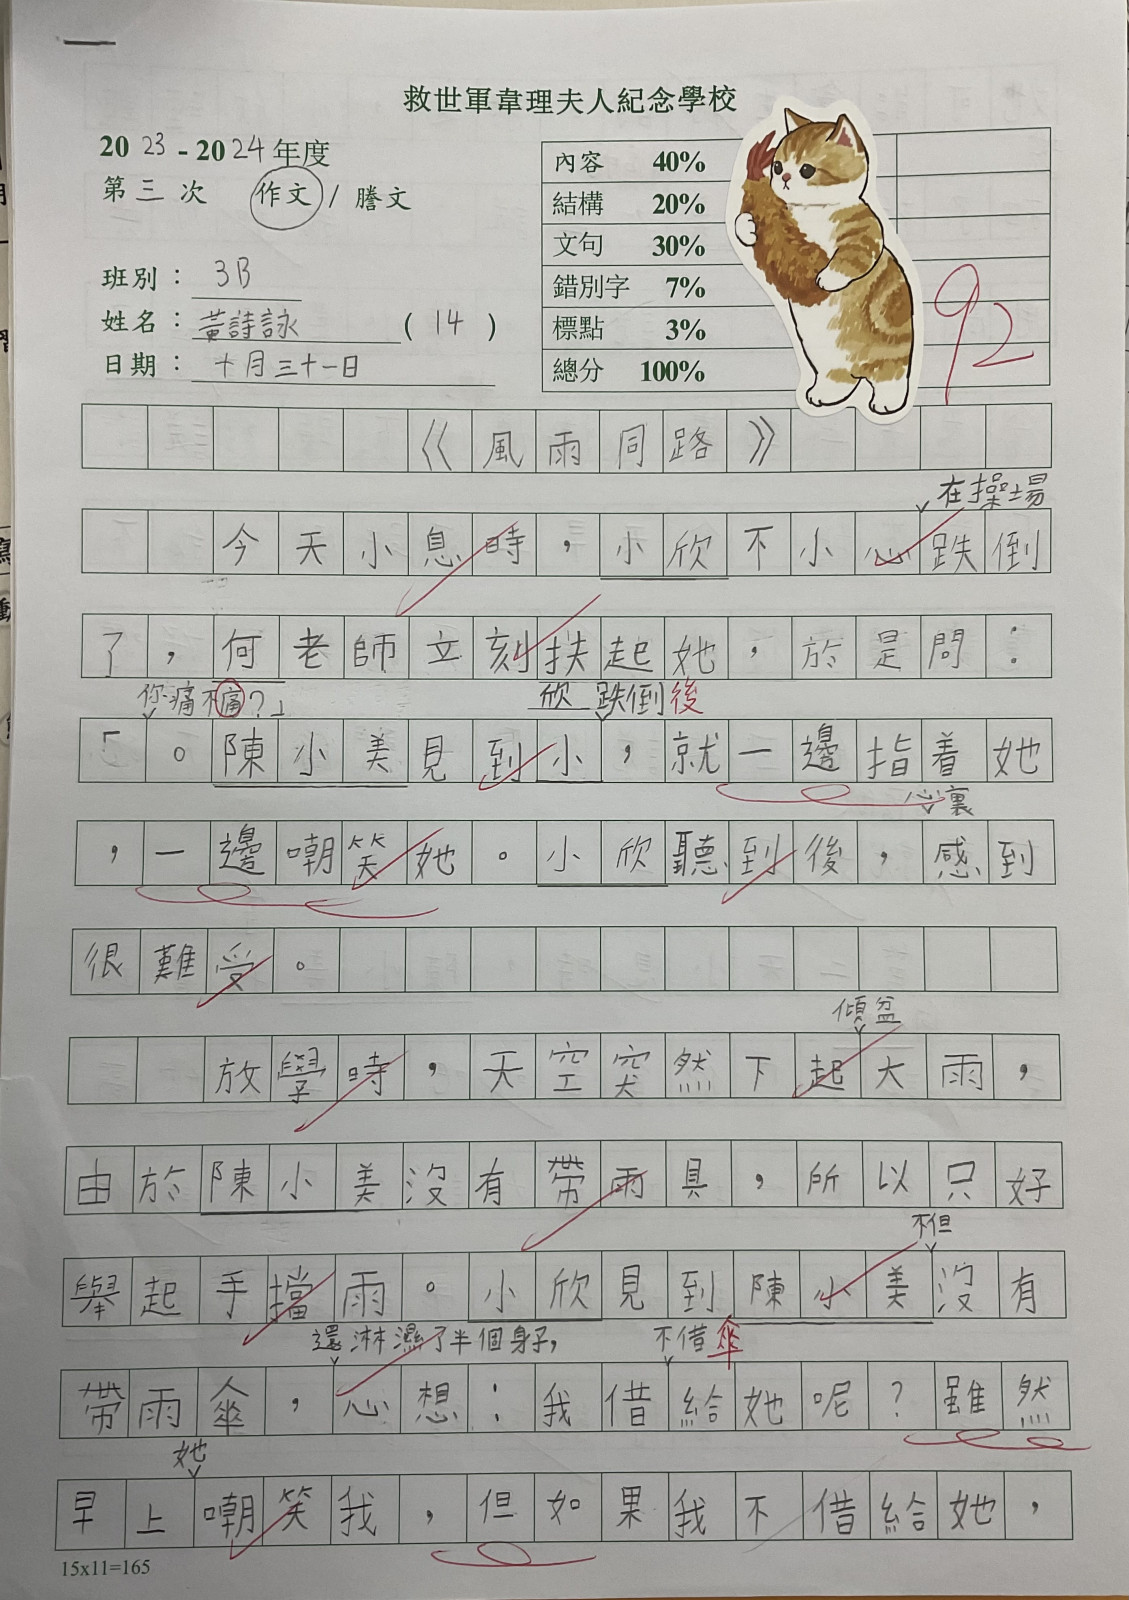 救世軍韋理夫人紀念學校
2023-2024年度
第三次 作文/謄文
班別：3B
姓名：黃詩詠（14）
日期：十月三十一日
內容 40%
結構 20%
文句 30%
錯別字 7%
標點 3%
總分 100%
92
《風雨同路》
在操場
今天小息時，小欣不小心跌倒
了，何老師立刻扶起她，於是問：
你痛不痛？」 欣 跌倒後
「。陳小美見到小，就一邊指着她
心裏
，一邊嘲笑她。小欣聽到後，感到
很難受。
傾盆
放學時，天空突然下起大雨，
由於陳小美沒有帶雨具，所以只好
不但
舉起手擋雨。小欣見到陳小美沒有
還淋濕了半個身子， 不借傘
帶雨傘，心想：我借給她呢？雖然
她
早上嘲笑我，但如果我不借給她，
15x11=165